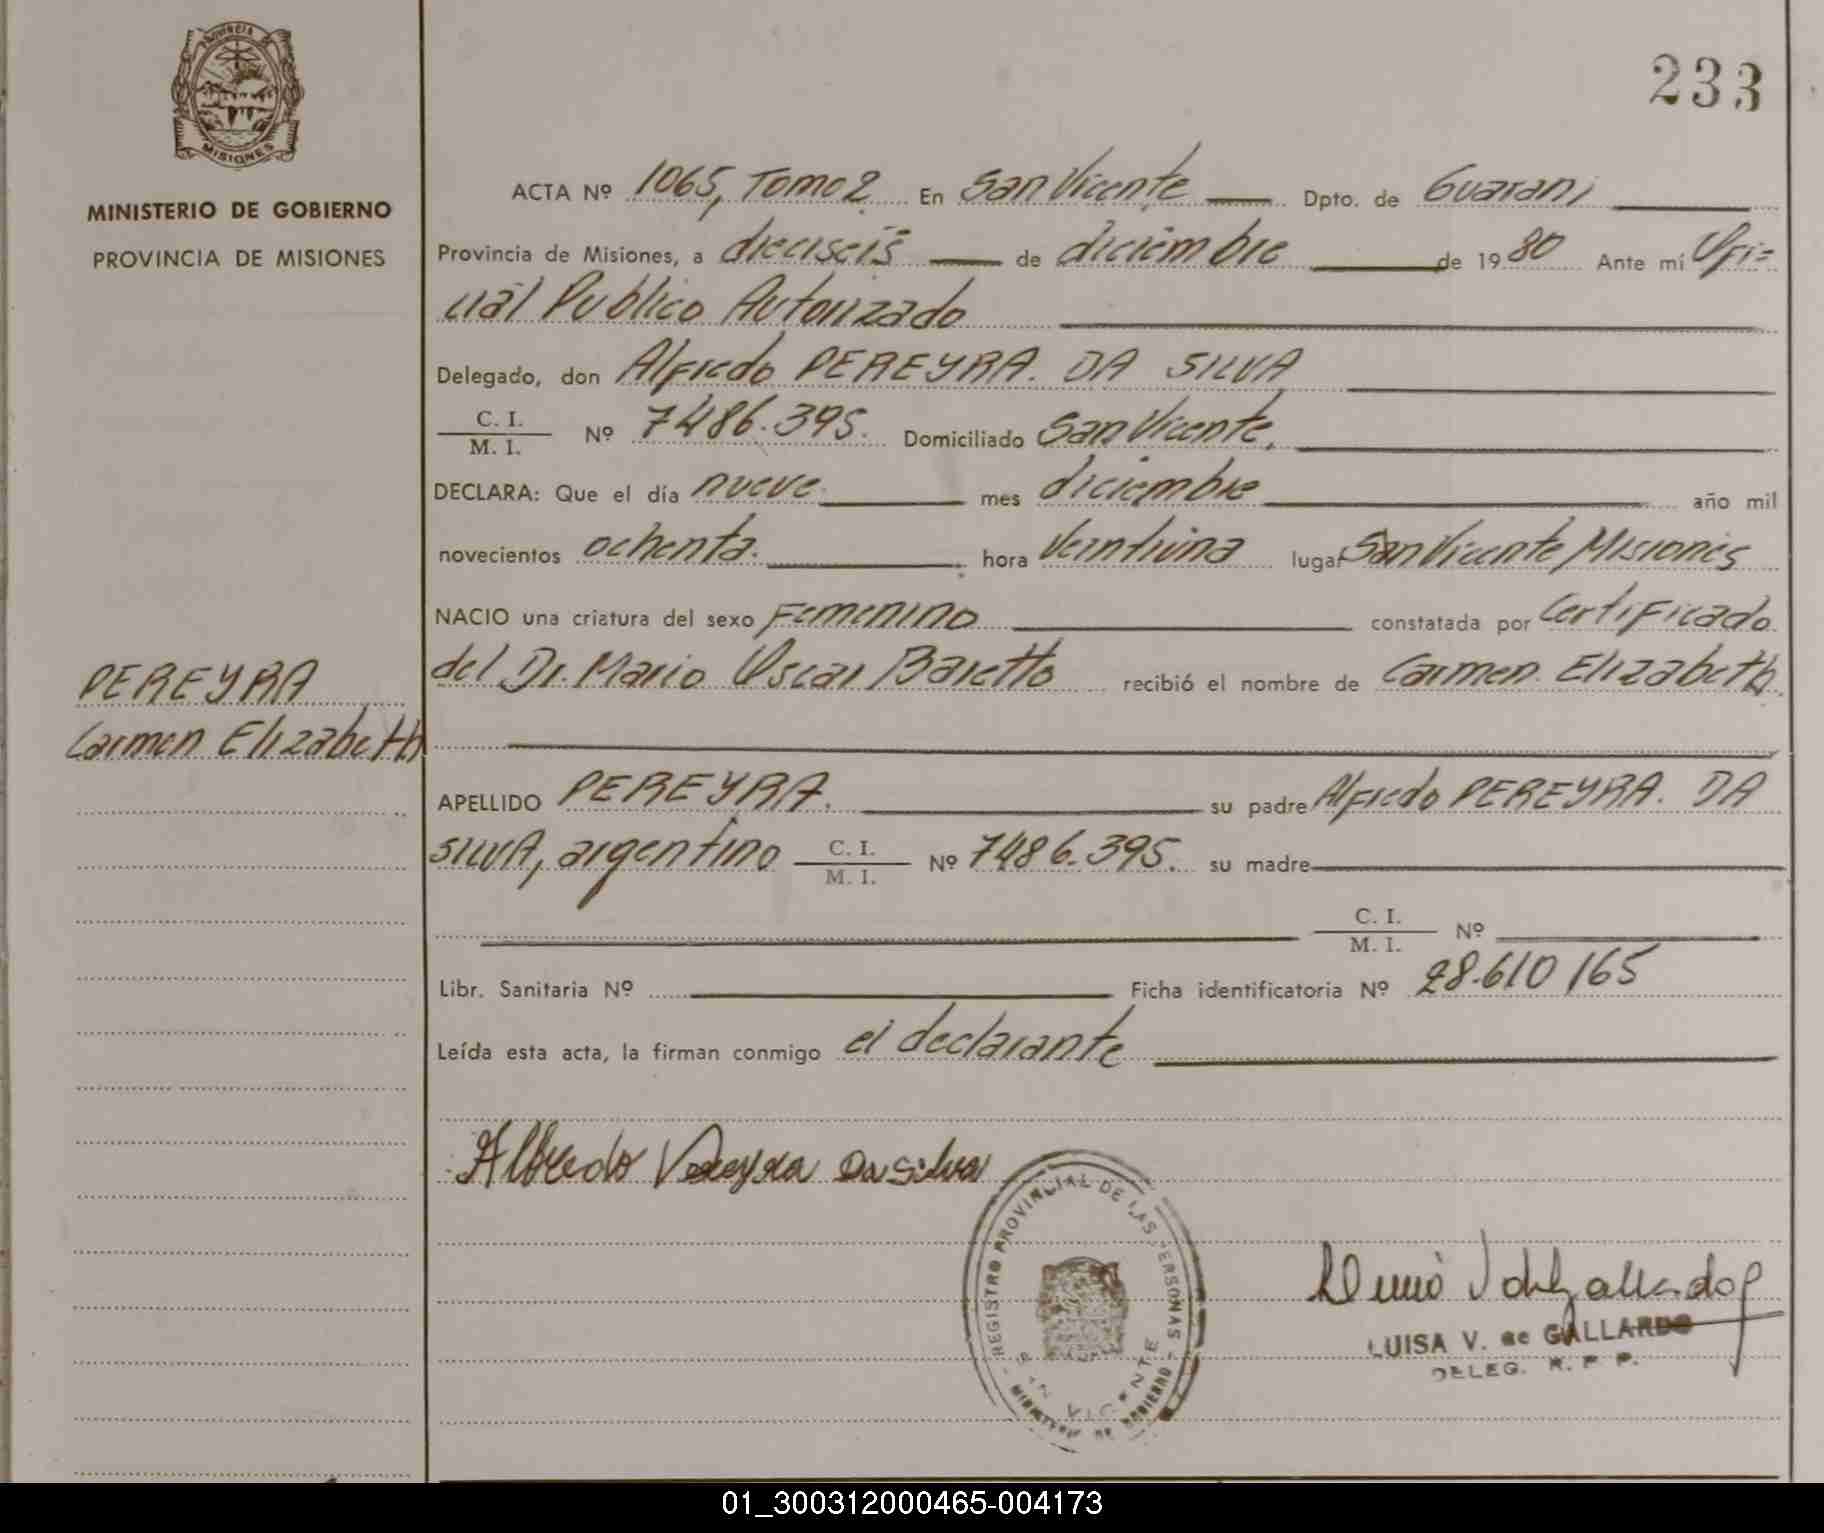 233
PROVINCIA DE
MISIONES
MINISTERIO DE GOBIERNO
PROVINCIA DE MISIONES
PEREYRA
Carmen Elizabeth
ACTA Nº 1065, Tomo 2 En San Vicente Dpto. de Guarani
Provincia de Misiones, a dieciseis de diciembre de 1980 Ante mí Ofi=
cial Publico Autorizado
Delegado, don Alfredo PEREYRA. DA SILVA
C. I.
M. I. Nº 7486.395. Domiciliado San Vicente.
DECLARA: Que el día nueve mes diciembre año mil
novecientos ochenta. hora veintiuna lugar San Vicente, Misiones
NACIO una criatura del sexo Femenino constatada por Certificado
del Dr. Mario Oscar Baretto recibió el nombre de Carmen Elizabeth
APELLIDO PEREYRA. su padre Alfredo PEREYRA. DA
SILVA, argentino C. I. M. I. Nº 7486.395. su madre
C. I.
M. I. Nº
Libr. Sanitaria Nº Ficha identificatoria Nº 28.610 165
Leída esta acta, la firman conmigo el declarante
Alfredo Pereyra Da Silva
REGISTRO PROVINCIAL DE LAS PERSONAS - MINISTERIO DE GOBIERNO -
SAN VICENTE
LUISA V. de GALLARDO
DELEG. R. P. P.
01_300312000465-004173